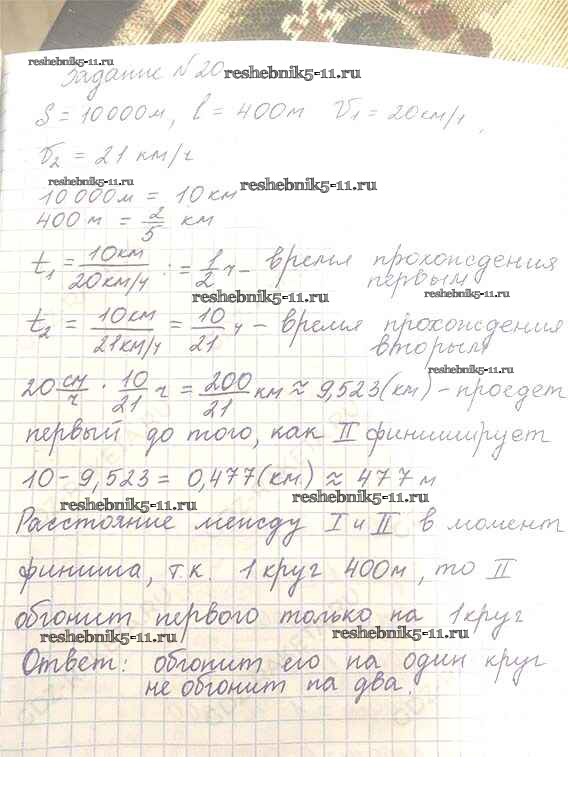 reshebnik5-11.ru
Задание N 20 reshebnik5-11.ru
S = 10000м, l = 400м V₁ = 20км/ч,
V₂ = 21 км/ч
reshebnik5-11.ru reshebnik5-11.ru
10 000м = 10 км
400 м = 2/5 км
t₁ = 10км/20км/ч := 1/2 ч - время прохождения
первым
reshebnik5-11.ru reshebnik5-11.ru
t₂ = 10км/21км/ч = 10/21 ч - время прохождения
вторым
reshebnik5-11.ru
20 см/ч · 10/21 ч = 200/21 км ≈ 9,523(км) - проедет
reshebnik5-11.ru
первый до того, как II финиширует
10 - 9,523 = 0,477(км) ≈ 477 м
reshebnik5-11.ru reshebnik5-11.ru
Расстояние между I и II в момент
финиша, т.к. 1 круг 400м, то II
обгонит первого только на 1 круг
reshebnik5-11.ru reshebnik5-11.ru
Ответ: обгонит его на один круг
не обгонит на два.